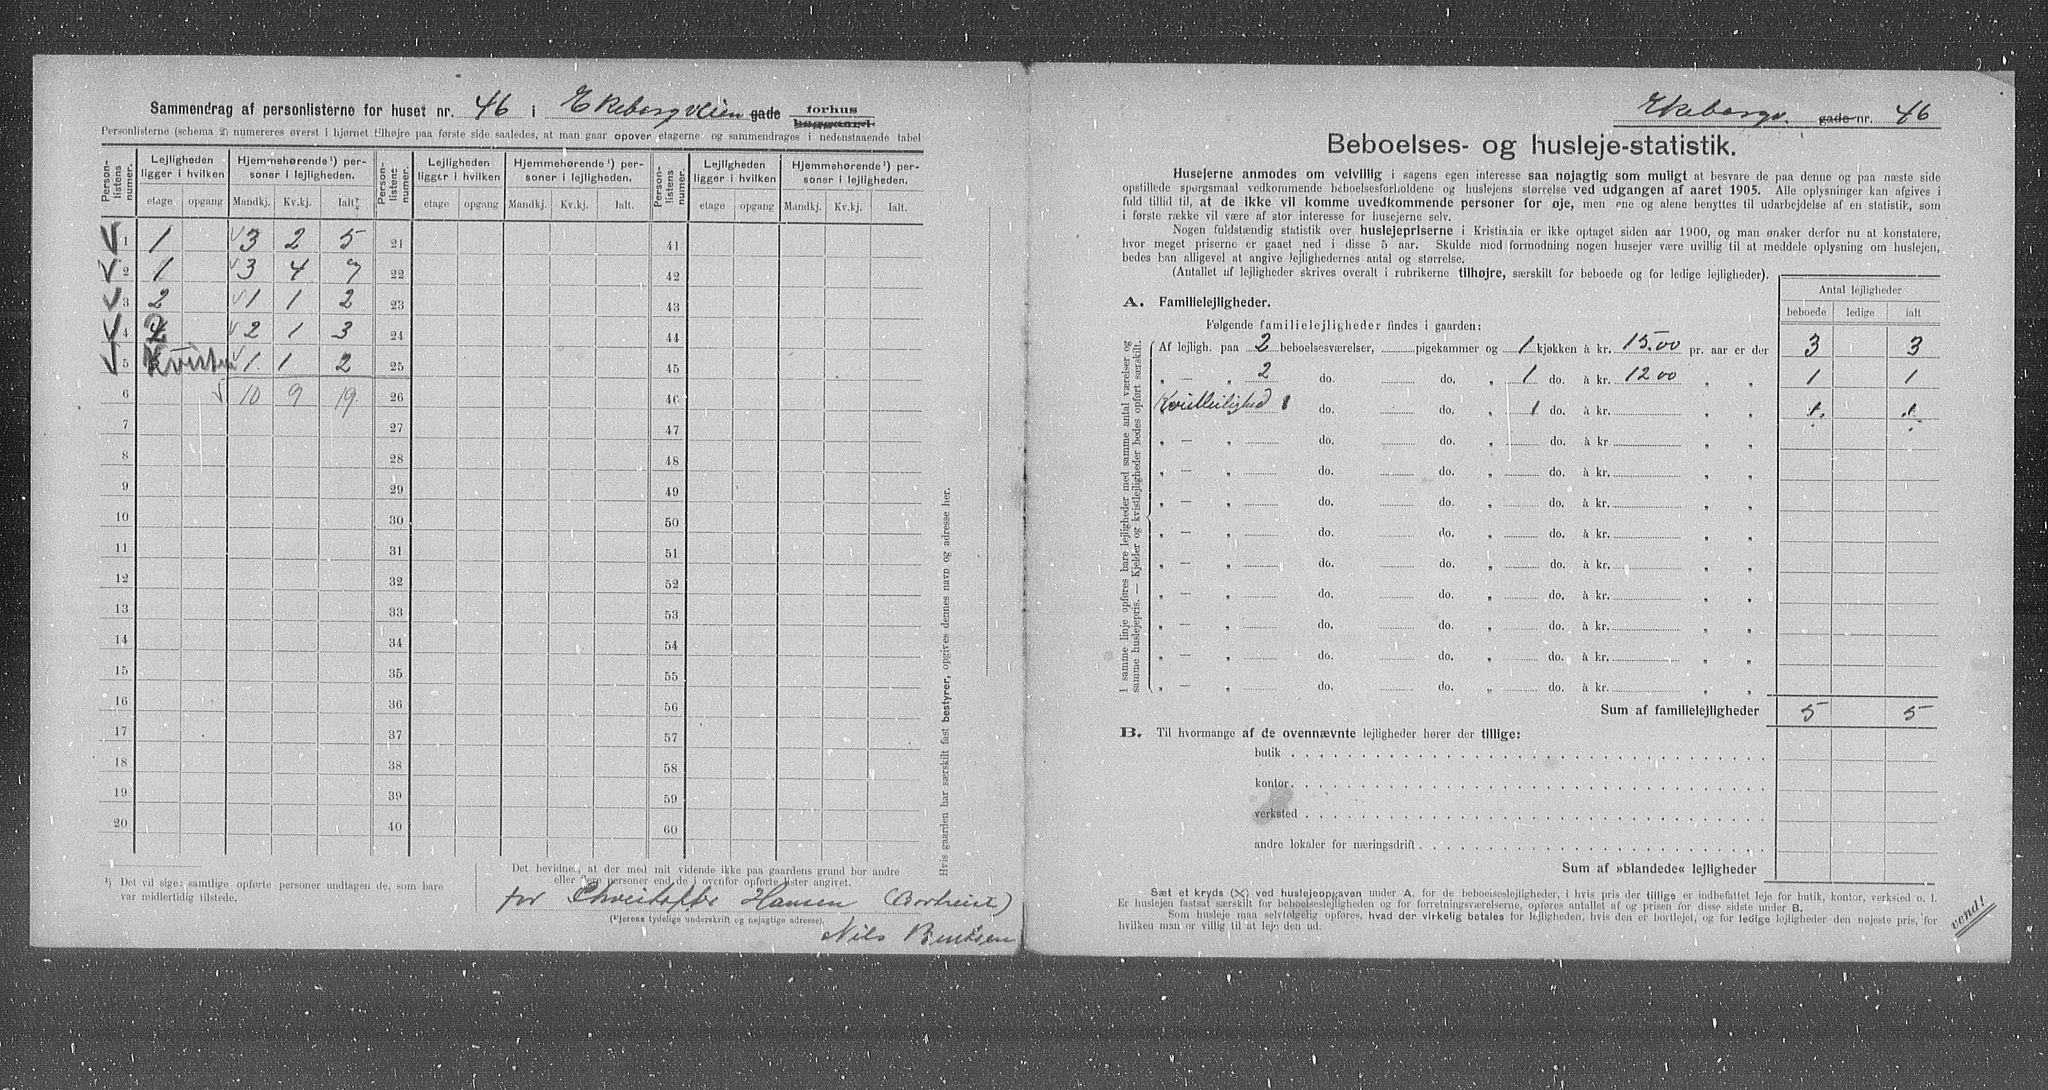 Sammendrag af personlisterne for huset nr. 46 i Ekebergveien gade forhus baggaard.
Personlisterne (schema 2) numereres øverst i hjørnet tilhøjre paa første side saaledes, at man gaar opover etagerne og sammendrages i nedenstaaende tabel
Person-listens numer. Lejligheden ligger i hvilken Hjemmehørende ¹) personer i lejligheden. Person-listens numer. Lejligheden ligger i hvilken Hjemmehørende ¹) personer i lejligheden. Person-listens numer. Lejligheden ligger i hvilken Hjemmehørende ¹) personer i lejligheden.
etage opgang Mandkj. Kv.kj. Ialt. etage opgang Mandkj. Kv.kj. Ialt. etage opgang Mandkj. Kv.kj. Ialt.
1 1 3 2 5 21 41
2 1 3 4 7 22 42
3 2 1 1 2 23 43
4 2 2 1 3 24 44
5 Kvisten 1 1 2 25 45
6 10 9 19 26 46
7 27 47
8 28 48
9 29 49
10 30 50
11 31 51
12 32 52
13 33 53
14 34 54
15 35 55
16 36 56
17 37 57
18 38 58
19 39 59
20 40 60
Hvis gaarden har særskilt fast bestyrer, opgives dennes navn og adresse her.
¹) Det vil sige: samtlige opførte personer undtagen de, som bare var midlertidig tilstede.
Det bevidnes, at der med mit vidende ikke paa gaardens grund bor andre
eller flere personer end de i ovenfor opførte lister angivet.
for Christoffer Hansen (Bortreist)
(Ejerens tydelige underskrift og nøjagtige adresse).
Nils Berntsen
Ekebergv. gade nr. 46
Beboelses- og husleje-statistik.
Husejerne anmodes om velvillig i sagens egen interesse saa nøjagtig som muligt at besvare de paa denne og paa næste side
opstillede spørgsmaal vedkommende beboelsesforholdene og huslejens størrelse ved udgangen af aaret 1905. Alle oplysninger kan afgives i
fuld tillid til, at de ikke vil komme uvedkommende personer for øje, men ene og alene benyttes til udarbejdelse af en statistik, som
i første række vil være af stor interesse for husejerne selv.
Nogen fuldstændig statistik over huslejepriserne i Kristiania er ikke optaget siden aar 1900, og man ønsker derfor nu at konstatere,
hvor meget priserne er gaaet ned i disse 5 aar. Skulde mod formodning nogen husejer være uvillig til at meddele oplysning om huslejen,
bedes han alligevel at angive lejlighedernes antal og størrelse.
(Antallet af lejligheder skrives overalt i rubrikerne tilhøjre, særskilt for beboede og for ledige lejligheder).
Antal lejligheder
beboede ledige ialt
A. Familielejligheder.
Følgende familielejligheder findes i gaarden:
I samme linje opføres bare lejligheder med samme antal værelser og samme huslejepris. — Kjelder og kvistlejligheder bedes opført særskilt.
Af lejligh. paa 2 beboelsesværelser, pigekammer og 1 kjøkken à kr. 15.00 pr. aar er der 3 3
„ — „ 2 do. do. „ 1 do. à kr. 12 00 „ „ 1 1
Kvistleilighed 1 do. do. „ 1 do. à kr. „ „ 1 1
„ — „ do. do. „ do. à kr. „ „
„ — „ do. do. „ do. à kr. „ „
„ — „ do. do. „ do. à kr. „ „
„ — „ do. do. „ do. à kr. „ „
„ — „ do. do. „ do. à kr. „ „
„ — „ do. do. „ do. à kr. „ „
„ — „ do. do. „ do. à kr. „ „
„ — „ do. do. „ do. à kr. „ „
„ — „ do. do. „ do. à kr. „ „
Sum af familielejligheder 5 5
B. Til hvormange af de ovennævnte lejligheder hører der tillige:
butik
kontor
verksted
andre lokaler for næringsdrift
Sum af »blandede« lejligheder
Sæt et kryds (X) ved huslejeopgaven under A. for de beboelseslejligheder, i hvis pris der tillige er indbefattet leje for butik, kontor, verksted o. l.
Er huslejen fastsat særskilt for beboelseslejligheden og for forretningsværelserne, opføres antallet af og prisen for disse sidste under B.
Som husleje maa selvfølgelig opføres, hvad der virkelig betales for lejligheden, hvis den er bortlejet, og for ledige lejligheder den nøjeste pris, for
hvilken man er villig til at leje den ud.
vend!